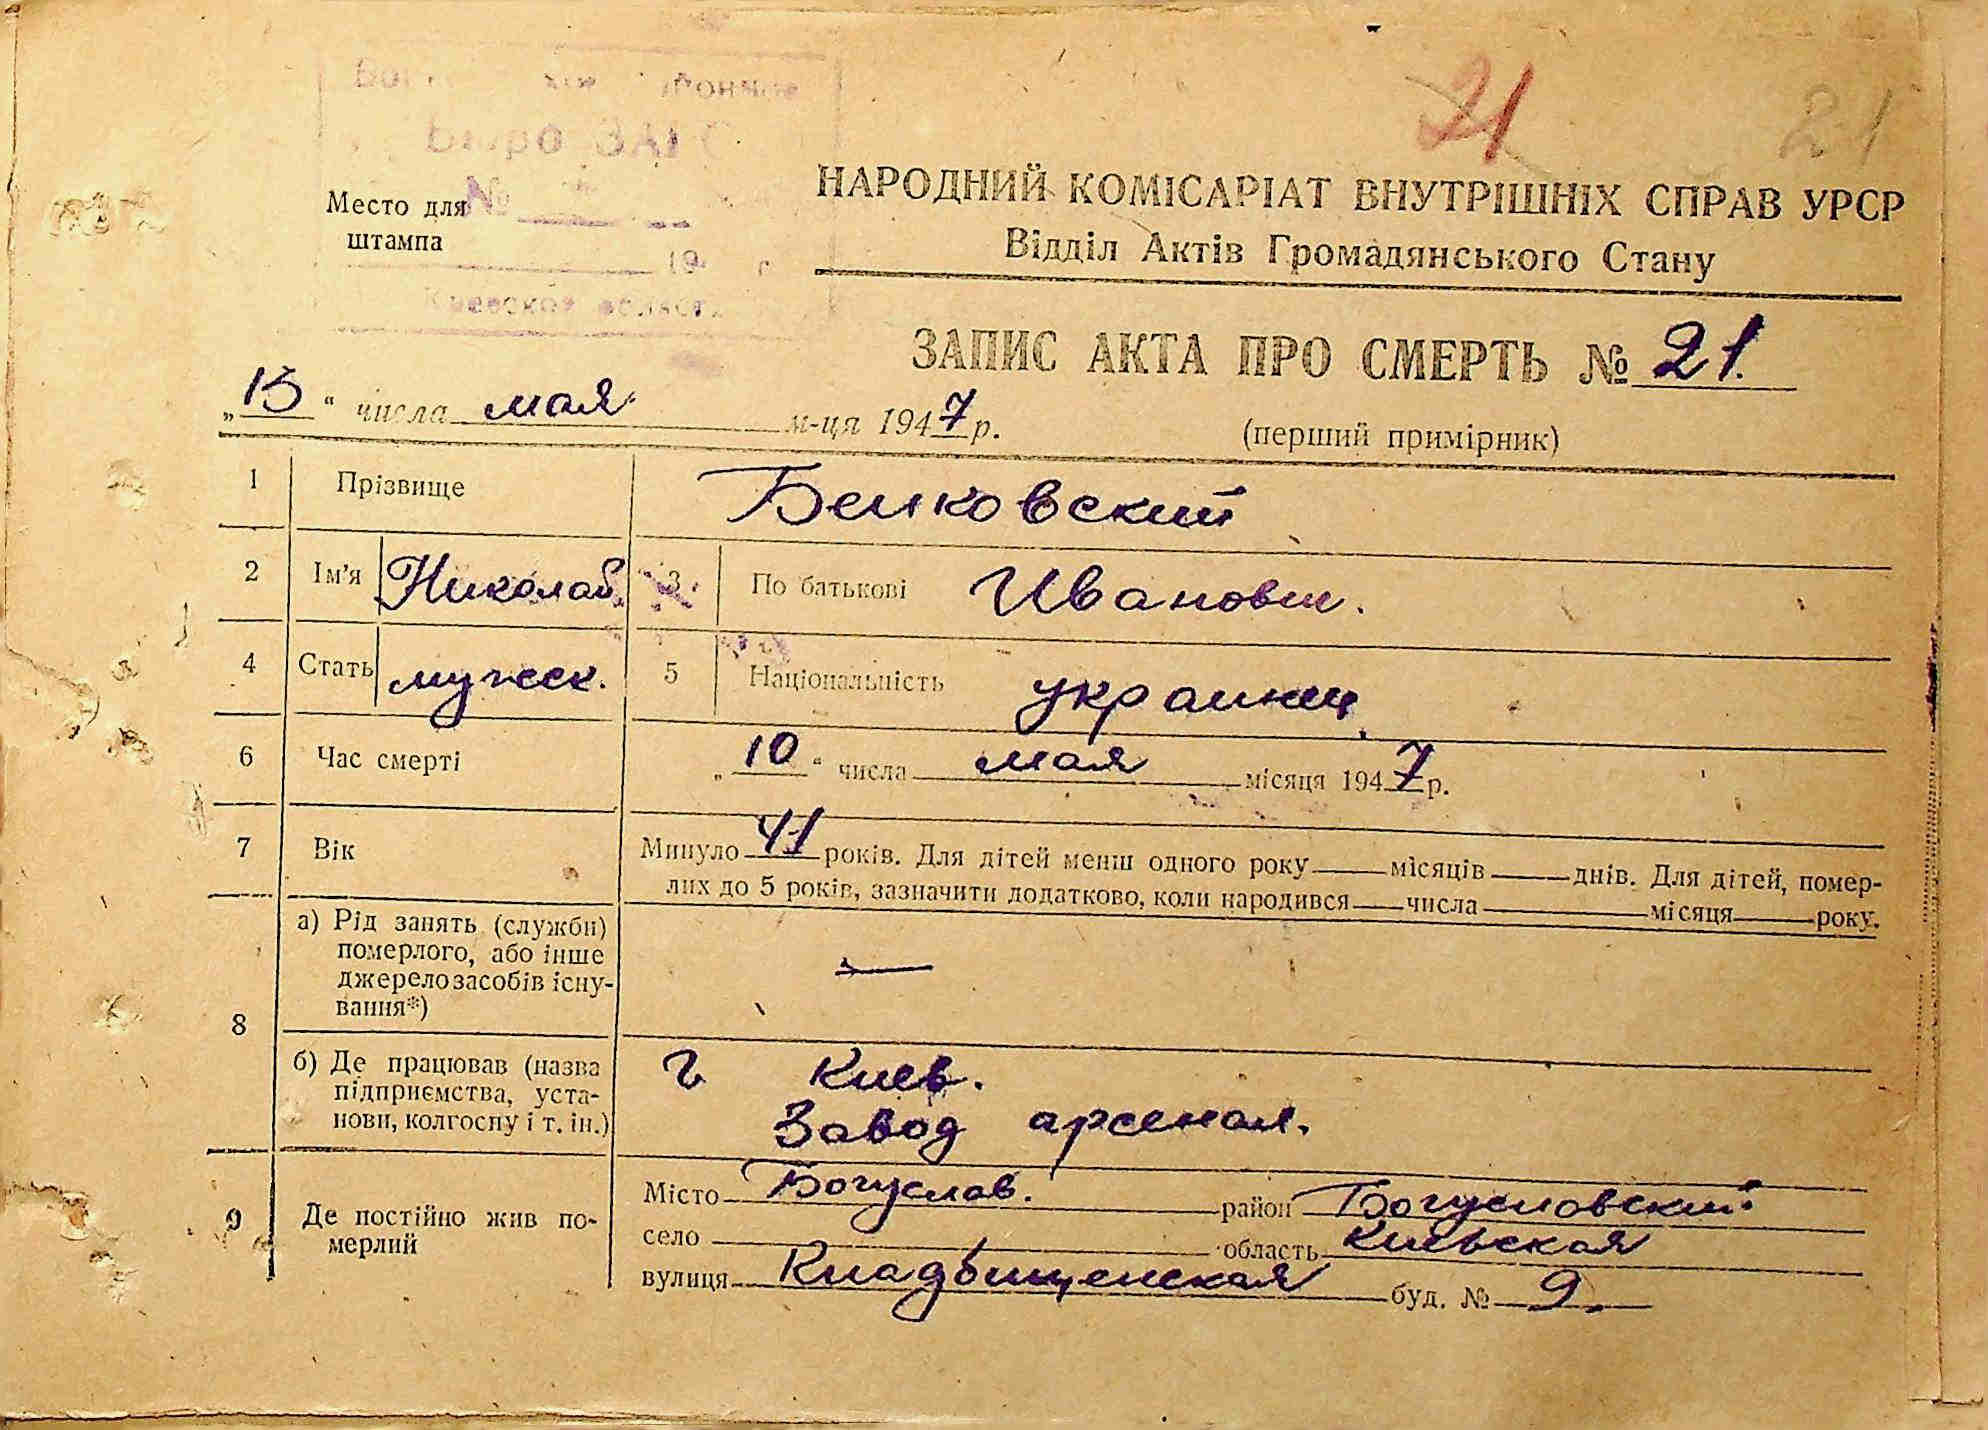 21
21
Бюро ЗАГС
Место для №
штампа
19 г
Киевской област
НАРОДНИЙ КОМІСАРІАТ ВНУТРІШНІХ СПРАВ УРСР
Відділ Актів Громадянського Стану
ЗАПИС АКТА ПРО СМЕРТЬ № 21.
„13“ числа мая м-ця 1947 р.
(перший примірник)
1 Прізвище Белковский
2 Ім'я Николай 3 По батькові Иванович.
4 Стать мужск. 5 Національність украинец
6 Час смерті „10“ числа мая місяця 1947 р.
7 Вік Минуло 41 років. Для дітей менш одного року місяців днів. Для дітей, помер-
лих до 5 років, зазначити додатково, коли народився числа місяця року.
8 а) Рід занять (служби)
померлого, або інше
джерело засобів існу-
вання*) —
б) Де працював (назва
підприємства, уста-
нови, колгоспу і т. ін.)
г Киев.
Завод арсенал.
9 Де постійно жив по-
мерлий
Місто Богуслав. район Богуславский
село область Киевская
вулиця Кладбищенская буд. № 9.